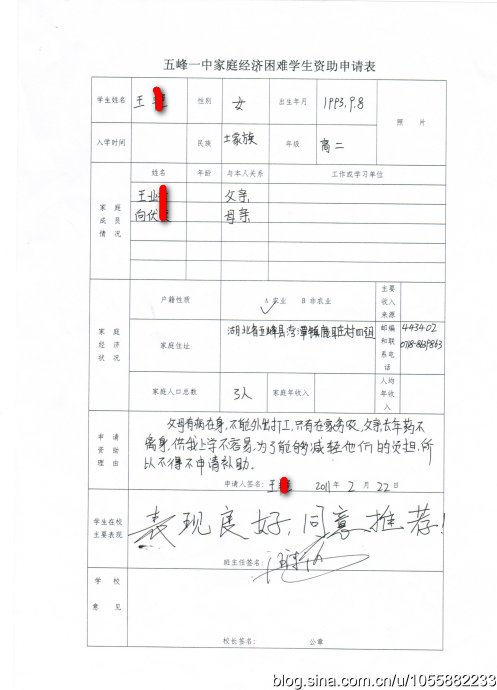 五峰一中家庭经济困难学生资助申请表
学生姓名 王 性别 女 出生年月 1993.9.8 照 片
入学时间 民族 土家族 年级 高二
家庭成员情况 姓名 年龄 与本人关系 工作或学习单位
王业 父亲
向伏 母亲
家庭经济状况 户籍性质 A 农业 B 非农业 主要收入来源
家庭住址 湖北省五峰县湾潭镇 村四组 邮编和联系电话 443402
家庭人口总数 3人 家庭年收入 人均年收入
申请资助理由 父母有病在身,不能外出打工,只有在家务农,父亲长年药不
离身,供我上学不容易,为了能够减轻他们的负担,所
以不得不申请补助。
申请人签名: 王 2011 年 2 月 22 日
学生在校主要表现 表现良好,同意推荐!
班主任签名:
学 校 意 见
校长签名: 公章
blog.sina.com.cn/u/1055882233